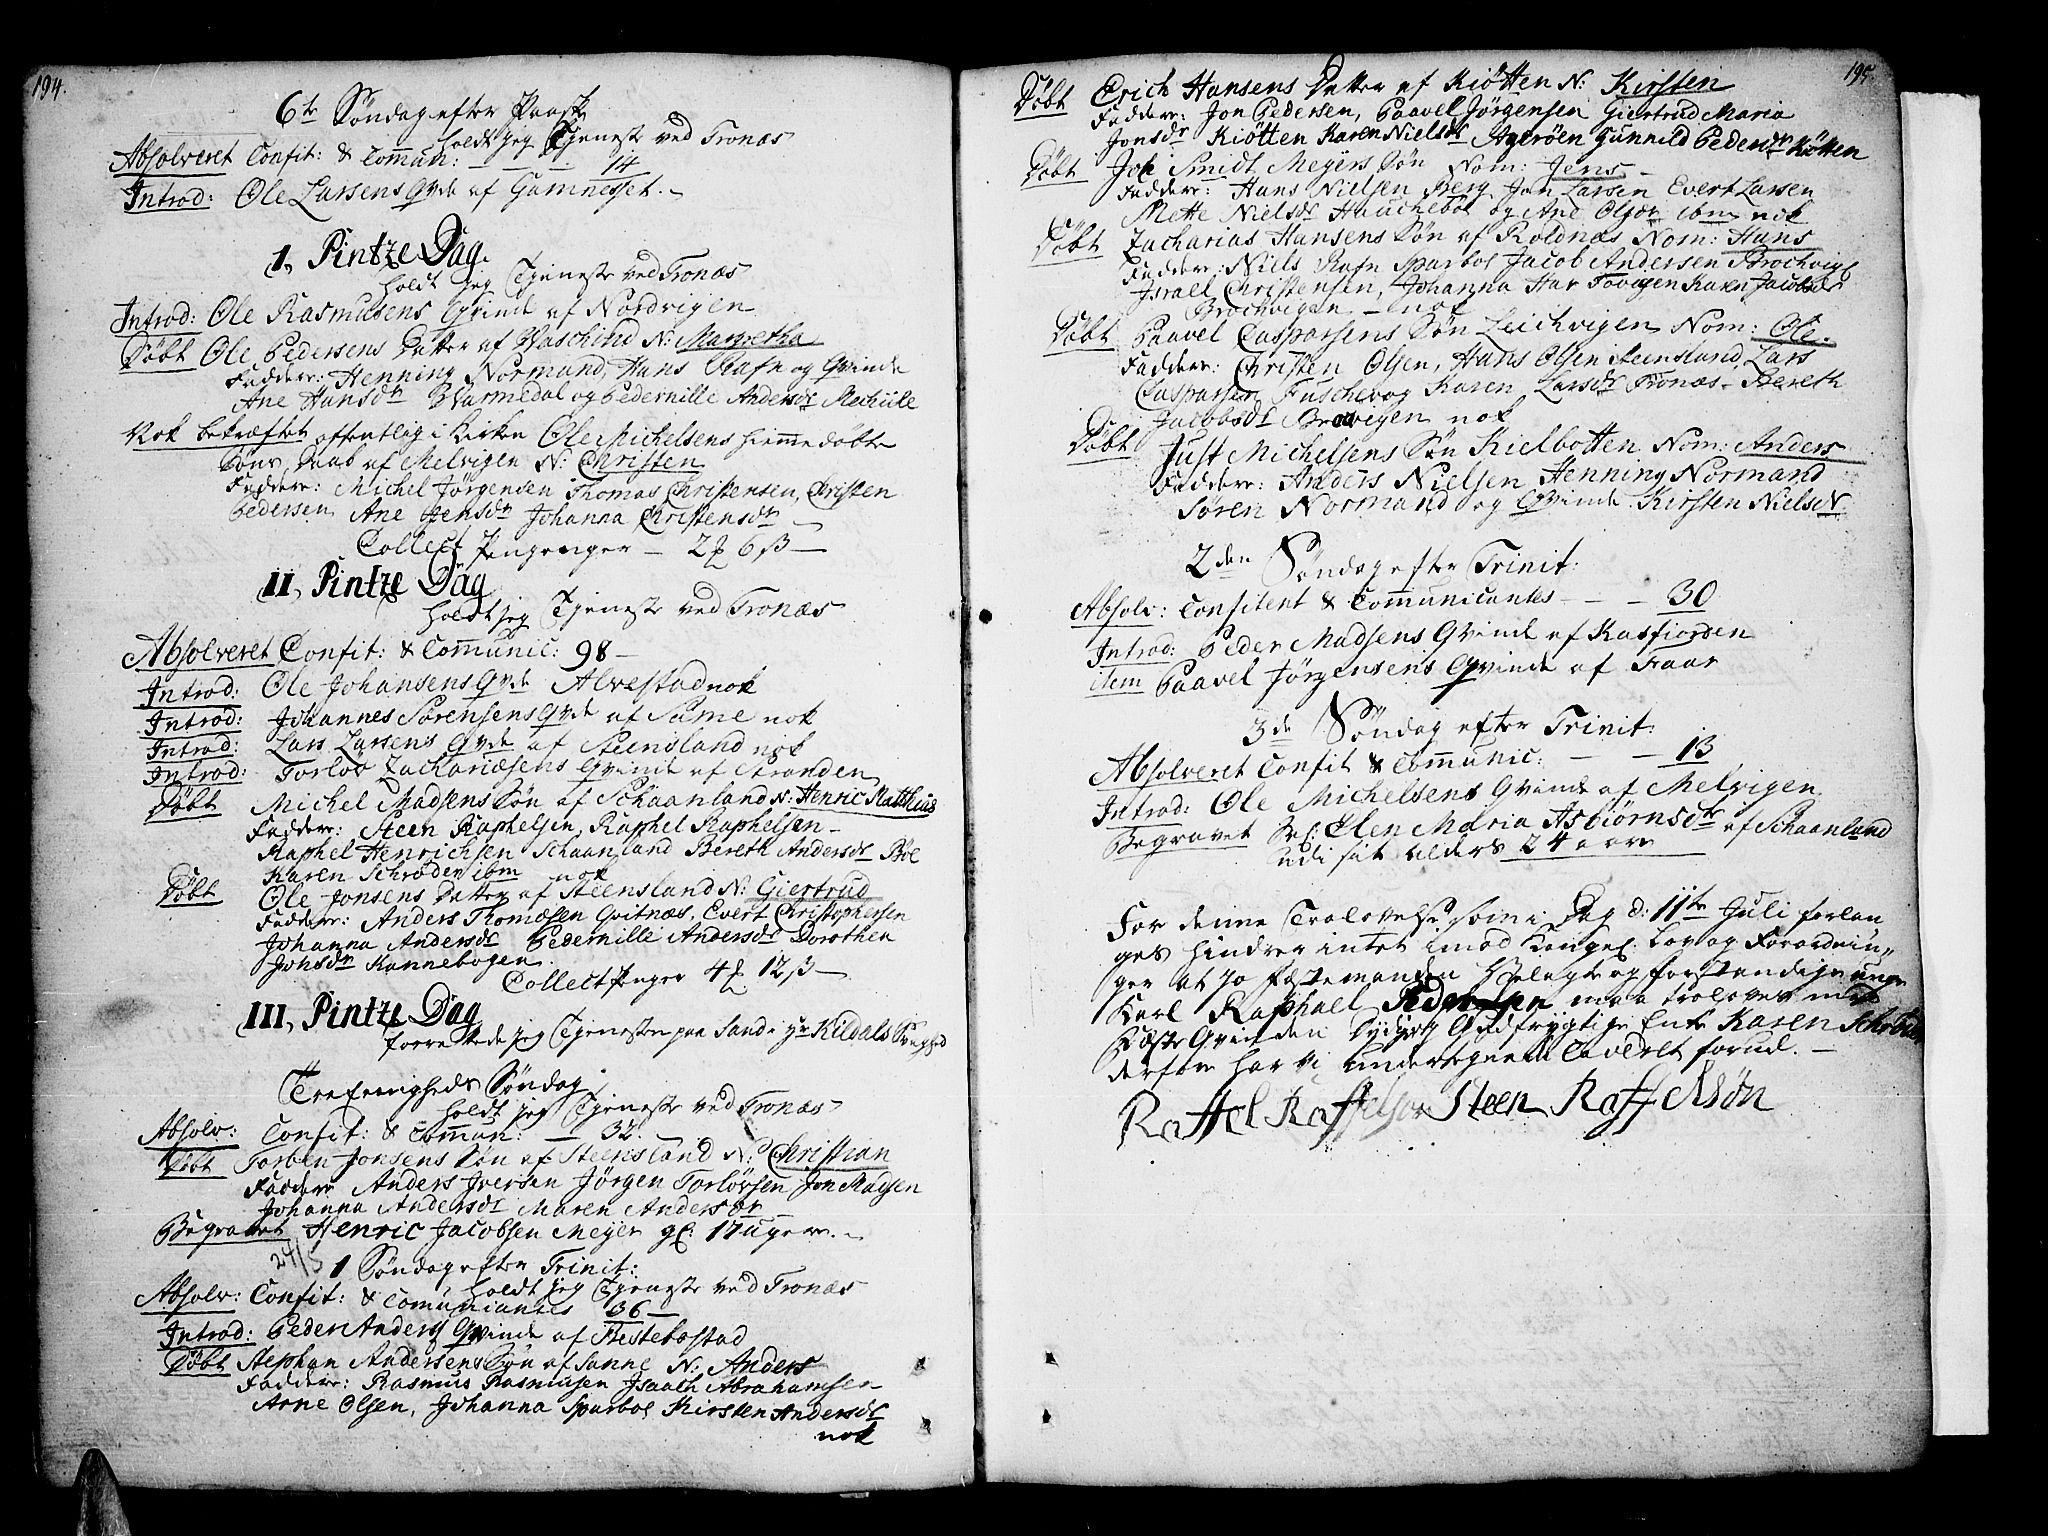 194.
6te Søndag efter Paaske
holdt jeg Tjeneste ved Tronæs
Absolveret Confit: & Commun: — — — 14
Introd: Ole Larsens Qvde af Gamnesset. –
1, Pintze Dag.
holdt jeg Tjeneste ved Tronæs
Introd: Ole Rasmusens Qvinde af Nordvigen
Døbt Ole Pedersens Datter af N: Margretha
Faddere: Henning Normand, Hans Rafn og Qvinde
Ane Hansdr Warmedal og Pedernille Andersdr
Nok bekræftet offentlig i Kirken Ole Michelsens hiemme døbte
Søns Daab af Melvigen N: Christen
Faddere: Michel Jørgensen Thomas Christensen, Christen
Pedersen Ane Jensdr Johanna Christensdr –
Collect Penger – 2 6 ß —
II, Pintze Dag
holdt jeg Tjeneste ved Tronæs
Absolveret Confit: & Communic: 98 –
Introd: Ole Johansens Qvde Alvestad nok
Introd: Johannes Sørensens Qvde af Same nok
Introd: Lars Larsens Qvde af Steensland nok
Introd: Torlov Zachariæsens Qvinde af Stranden
Døbt Michel Madsens Søn af Schaanland N: Henric Matthias
Faddere: Steen Raphelsen, Raphel Raphelsen –
Raphel Henrichsen Schaanland Bereth Andersdr Bøe
Karen Schrøder ibm nok
Døbt Ole Jonsens Datter af Steensland N: Giertrud
Faddere: Anders Thomæsen Qvitnæs, Evert Christophersen
Johanna Andersdr Pedernille Andersdr Dorothea
Johsdr Kannebogen.
Collect Penger 4 12 ß —
III, Pintze Dag
forrettede jeg Tjenesten paa Sand i Hr Kildals Svaghed
Trefoenigheds Søndag
holdt jeg Tjeneste ved Tronæs
Absolv: Confit: & Commun: — 32. –
Døbt Torben Jonsens Søn af Steensland N: Christian
Faddere Anders Iversen Jørgen Torlovsen Jon Madsen
Johanna Andersdr Maren Andersdr –
Begravet Henric Jacobsen Meyer gl: 17 uger. –
24/5
1 Søndag efter Trinit:
holdt jeg Tjeneste ved Tronæs
Absolv: Confit: & Comunicantes 36 –
Introd: Peder Anders Qvinde af Hestebostad
Døbt Stephan Andersens Søn af Sanne N: Anders
Faddere: Rasmus Rasmusen Isaach Abrahamsen
Arne Olsen, Johanna Sparboe Kirsten Andersdr
nok
195.
Døbt Erich Hansens Datter af Kiøtten N: Kirsten
Faddere: Jon Pedersen, Paavel Jørgensen Giertrud Maria
Jonsdr Kiøtten Karen Nielsdr Agerøen Gunnild Pedersdr Kiøtten
Døbt Smidt Meyers Søn Nom: Jens –
Faddere: Hans Nielsen Berg Jon Larsen Evert Larsen
Mette Nielsdr Hauchebøe og Ane Olsdr ibm nok
Døbt Zacharias Hansens Søn af Roldnæs Nom: Hans
Faddere: Niels Rafn Sparboe Jacob Andersen Brochvigen
Israel Christensen, Johanna Har Fovigen Karen Jacobsdr
Brochvigen – nok
Døbt Paavel Caspersens Søn Leichvigen Nom: Ole.
Faddere: Christen Olsen, Hans Olsen Steensland, Lars
Caspersen Fuschevog Karen Larsdr Tronæs. Bereth
Jacobsdr nok
Døbt Just Michelsens Søn Kielbotten Nom: Anders
Faddere: Anders Nielsen Henning Normand
Søren Normand og Qvinde. Kirsten Nielsdr
2den Søndag efter Trinit:
Absolv: Confitent & Communicantes – – – 30
Introd: Peder Madsens Qvinde af Kasfiorden
item Paavel Jørgensens Qvinde af Traar
3de Søndag efter Trinit:
Absolveret Confit & Communic: — — 13
Introd: Ole Michelsens Qvinde af Melvigen
Begravet Sel: Elen Maria Asbiørnsdr af Schaanland
udi sit alders 24 aar
For denne Trolovelse som i Dag d: 11te Juli forlan
ges hindrer intet imod Kongel. Lov og Forordnin„
ger at jo Fæstemanden Velagte og forstandige unge
Karl Raphael Pedersen maa troloves med
Fæste Qvinden Dydige Gudfrygtige Enke Karen Schrøder
derfore har vi underskrevne Caveret forud. –
Raffel Raffelsøn Steen Raffelsøn